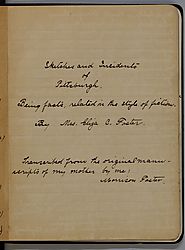 Sketches and Incidents
of
Pittsburgh.
Being facts, related in the style of fiction.
By Mrs. Eliza C. Foster.
Transcribed from the original manu-
scripts of my mother by me:
Morrison Foster.